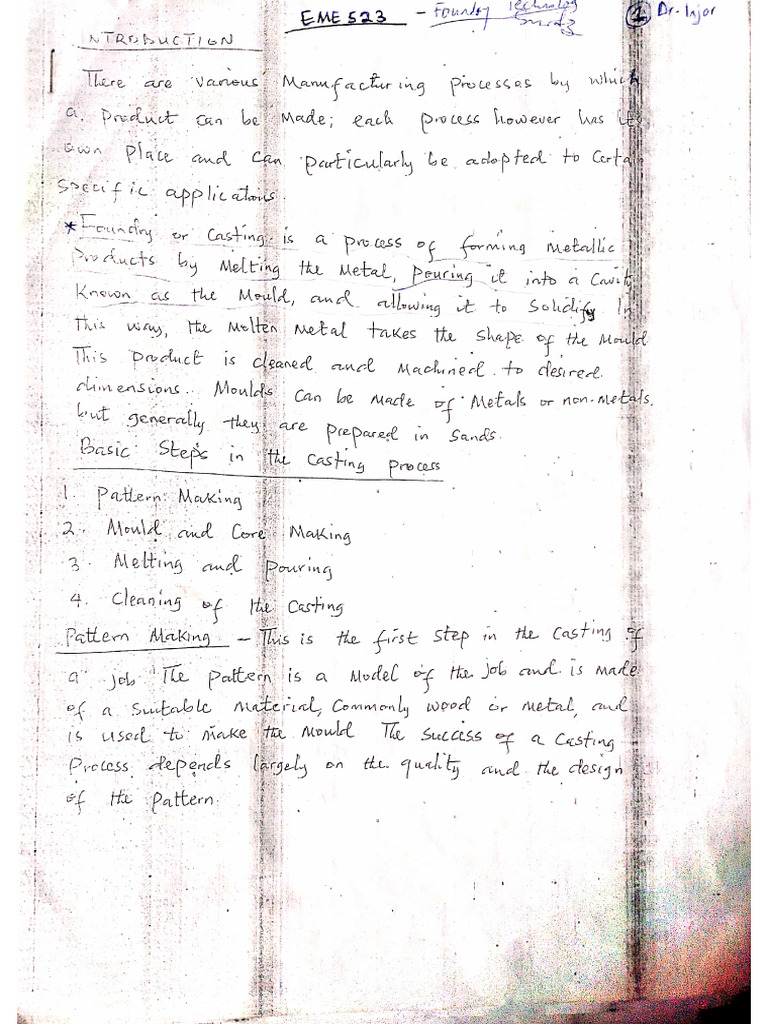 EME 523 - Foundry Technology
① Dr. Injor
INTRODUCTION
There are various Manufacturing processes by which
a product can be Made; each process however has its
own place and can particularly be adopted to Certain
specific applications.
* Foundry or Casting is a process of forming metallic
products by Melting the Metal, pouring it into a Cavity
Known as the Mould, and allowing it to Solidify. In
this way, the Molten Metal takes the shape of the Mould
This product is cleaned and Machined to desired
dimensions. Moulds can be made of Metals or non-metals.
but generally they are prepared in Sands.
Basic Steps in the Casting process
1. Pattern Making
2. Mould and Core Making
3. Melting and Pouring
4. Cleaning of the Casting
Pattern Making - This is the first step in the Casting of
a job. The pattern is a Model of the job and is made
of a suitable Material, Commonly wood or Metal, and
is used to make the Mould. The success of a Casting
Process depends largely on the quality and the design
of the pattern.